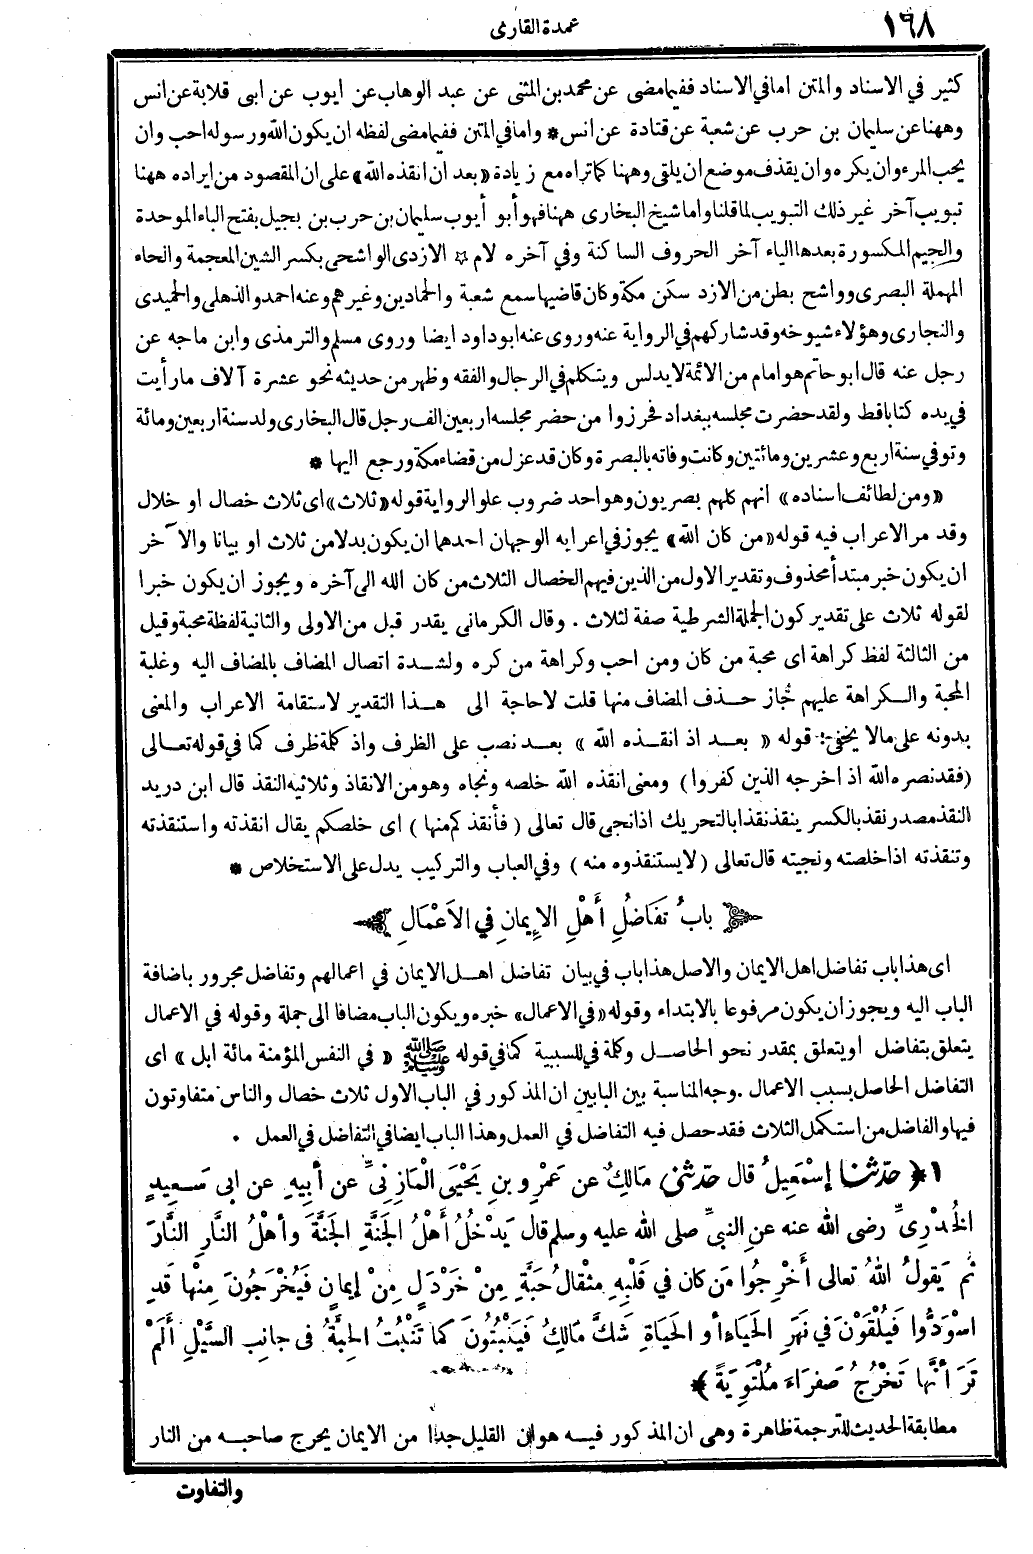 ١٦٨
عمدة القارئ
كثير في الاسناد والمتن اما في الاسناد ففيما مضى عن محمد بن المثنى عن عبد الوهاب عن ايوب عن ابى قلابة عن انس
وههنا عن سليمان بن حرب عن شعبة عن قتادة عن انس * واما في المتن ففيما مضى لفظه ان يكون الله ورسوله احب وان
يحب المرء وان يكره وان يقذف موضع ان يلقى وههنا كما تراه مع زيادة «بعد ان انقذه الله» على ان المقصود من ايراده ههنا
تبويب آخر غير ذلك التبويب لما قلنا واما شيخ البخارى ههنا فهو أبو أيوب سليمان بن حرب بن بجيل بفتح الباء الموحدة
والجيم المكسورة بعدها الياء آخر الحروف الساكنة وفي آخره لام ☆ الازدى الواشحى بكسر الشين المعجمة والحاء
المهملة البصرى وواشح بطن من الازد سكن مكة وكان قاضيها سمع شعبة والحمادين وغيرهم وعنه احمد والذهلى والحميدى
والنجارى وهؤلاء شيوخه وقد شاركهم في الرواية عنه وروى عنه ابو داود ايضا وروى مسلم والترمذى وابن ماجه عن
رجل عنه قال ابو حاتم هو امام من الائمة لا يدلس ويتكلم في الرجال والفقه وظهر من حديثه نحو عشرة آلاف ما رأيت
في يده كتابا قط ولقد حضرت مجلسه ببغداد فحرزوا من حضر مجلسه اربعين الف رجل قال البخارى ولد سنة اربعين ومائة
وتوفي سنة اربع وعشرين ومائتين وكانت وفاته بالبصرة وكان قد عزل من قضاء مكة ورجع اليها *
«ومن لطائف اسناده» انهم كلهم بصريون وهو احد ضروب علو الرواية قوله «ثلاث» اى ثلاث خصال او خلال
وقد مر الاعراب فيه قوله «من كان الله» يجوز في اعرابه الوجهان احدهما ان يكون بدلا من ثلاث او بيانا والآخر
ان يكون خبر مبتدأ محذوف وتقدير الاول من الذين فيهم الخصال الثلاث من كان الله الى آخره ويجوز ان يكون خبرا
لقوله ثلاث على تقدير كون الجملة الشرطية صفة لثلاث . وقال الكرمانى يقدر قبل من الاولى والثانية لفظة محبة وقيل
من الثالثة لفظ كراهة اى محبة من كان ومن احب وكراهة من كره ولشدة اتصال المضاف بالمضاف اليه وغلبة
المحبة والكراهة عليهم جاز حذف المضاف منها قلت لا حاجة الى هذا التقدير لاستقامة الاعراب والمعنى
بدونه على مالا يخفى قوله « بعد اذ انقذه الله » بعد نصب على الظرف واذ كلمة ظرف كما في قوله تعالى
(فقد نصره الله اذ اخرجه الذين كفروا) ومعنى انقذه الله خلصه ونجاه وهو من الانقاذ وثلاثيه النقذ قال ابن دريد
النقذ مصدر نقذ بالكسر ينقذ نقذا بالتحريك اذا نجى قال تعالى ( فأنقذكم منها ) اى خلصكم يقال انقذته واستنقذته
وتنقذته اذا خلصته ونجيته قال تعالى (لا يستنقذوه منه ) وفي العباب والتركيب يدل على الاستخلاص *
بابُ تَفَاضُلِ أَهْلِ الإِيمانِ في الأَعْمَالِ
اى هذا باب تفاضل اهل الايمان والاصل هذا باب في بيان تفاضل اهل الايمان في اعمالهم وتفاضل مجرور باضافة
الباب اليه ويجوز ان يكون مرفوعا بالابتداء وقوله «في الاعمال» خبره ويكون الباب مضافا الى جملة وقوله في الاعمال
يتعلق بتفاضل او يتعلق بمقدر نحو الحاصل وكلمة في للسببية كما في قوله ﷺ « في النفس المؤمنة مائة ابل » اى
التفاضل الحاصل بسبب الاعمال . وجه المناسبة بين البابين ان المذكور في الباب الاول ثلاث خصال والناس متفاوتون
فيها والفاضل من استكمل الثلاث فقد حصل فيه التفاضل في العمل وهذا الباب ايضا في التفاضل في العمل .
١ ﴿ حدّثنا إسْمَعِيلُ قال حدّثني مَالِكٌ عن عَمْرِو بنِ يَحْيَى المَازِنِيِّ عن أبِيهِ عن ابى سَعِيدٍ
الخُدْرِىِّ رضى الله عنه عنِ النبيِّ صلى الله عليه وسلم قال يَدْخُلُ أَهْلُ الجَنَّةِ الجَنَّةَ وأهْلُ النَّارِ النَّارَ
ثم يَقولُ اللهُ تعالى أَخْرِجُوا مَن كان في قَلْبِهِ مِثْقالُ حَبَّةٍ مِنْ خَرْدَلٍ مِنْ إيمانٍ فَيُخْرَجُونَ مِنْها قَدِ
اسْوَدُّوا فَيُلْقَوْنَ في نهَرِ الحَيَاءِ أو الحَيَاةِ شَكَّ مَالِكٌ فَيَنْبُتُونَ كما تَنْبُتُ الحِبَّةُ فى جانِبِ السَّيْلِ أَلَمْ
تَرَ أنَّها تَخْرُجُ صَفرَاءَ مُلْتَوِيَةً ﴾ *
مطابقة الحديث للترجمة ظاهرة وهى ان المذكور فيه هو ان القليل جدا من الايمان يخرج صاحبه من النار
والتفاوت